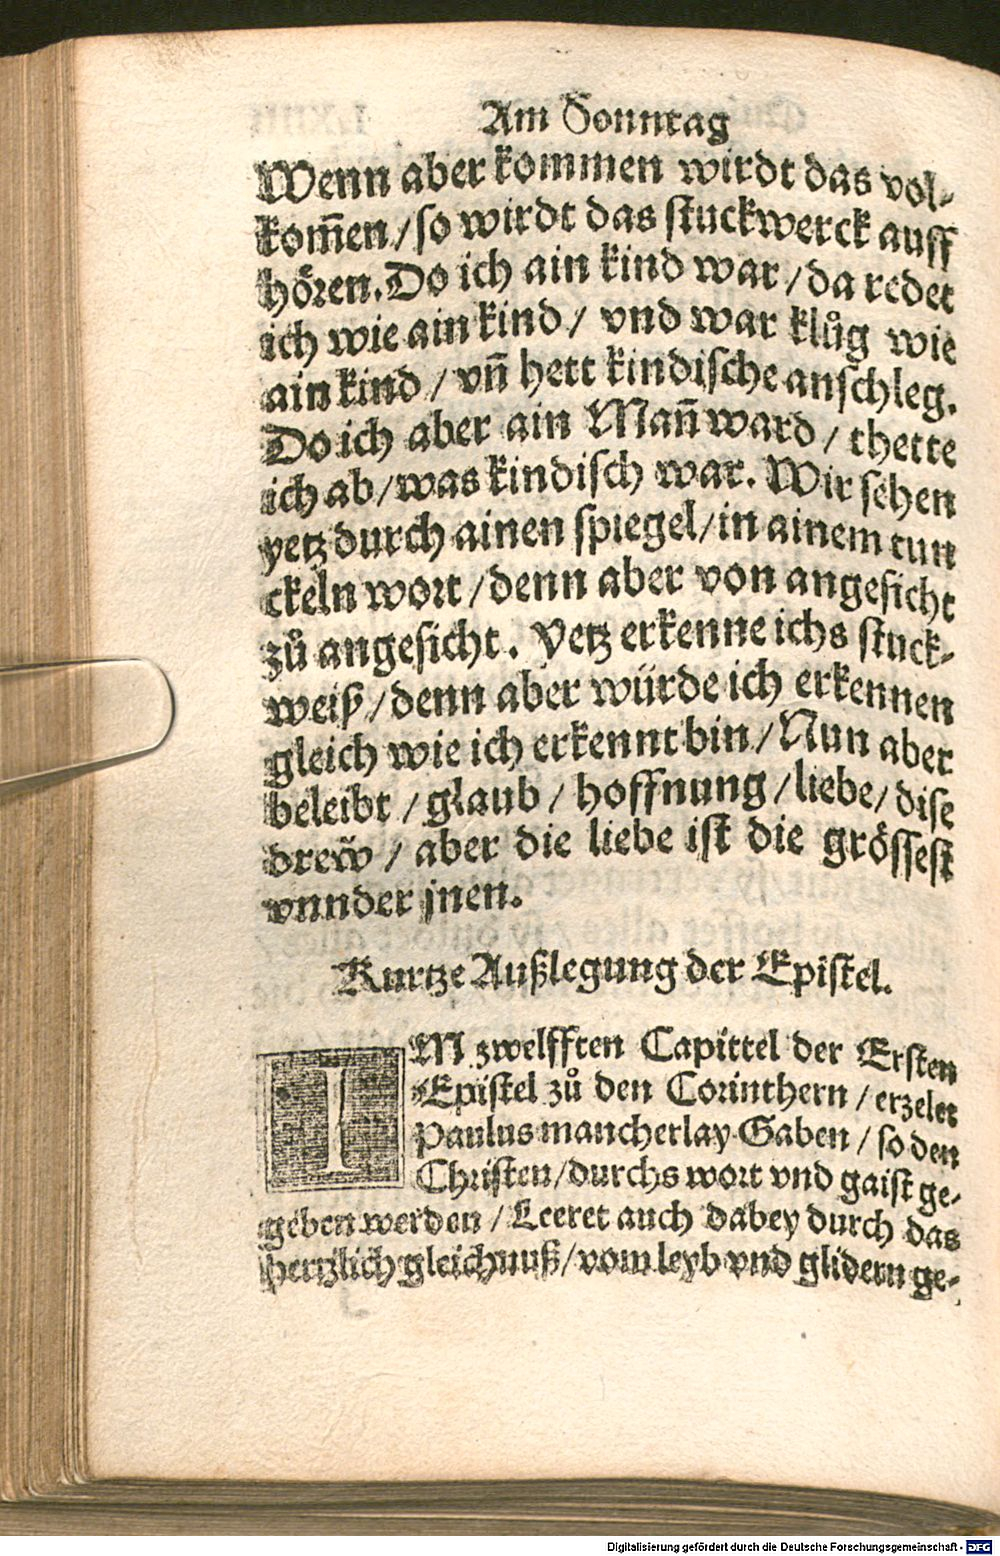 Am Sonntag
Wenn aber kommen wirdt das vol-
kom̄en / so wirdt das stuckwerck auff
hören. Do ich ain kind war / da redet
ich wie ain kind / vnd war klůg wie
ain kind / vn̄ hett kindische anschleg.
Do ich aber ain Man̄ ward / thette
ich ab / was kindisch war. Wir sehen
yetz durch ainen spiegel / in ainem tun
ckeln wort / denn aber von angesicht
zů angesicht. Yetz erkenne ichs stuck-
weiß / denn aber würde ich erkennen
gleich wie ich erkennt bin / Nun aber
beleibt / glaub / hoffnung / liebe / dise
drew̃ / aber die liebe ist die grössest
vnnder jnen.
Kurtze Außlegung der Epistel.
IM zwelfften Capittel der Ersten
Epistel zů den Corinthern / erzelet
Paulus mancherlay Gaben / so den
Christen / durchs wort vnd gaist ge-
geben werden / Leeret auch dabey durch das
hertzlich gleichnuß / vom leyb vnd glidern ge-
Digitalisierung gefördert durch die Deutsche Forschungsgemeinschaft - DFG